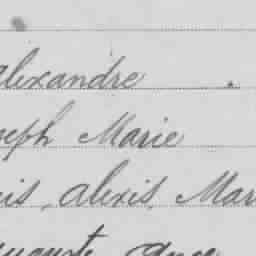 alexandre
seph Marie
cis, alexis, Mar
uguste